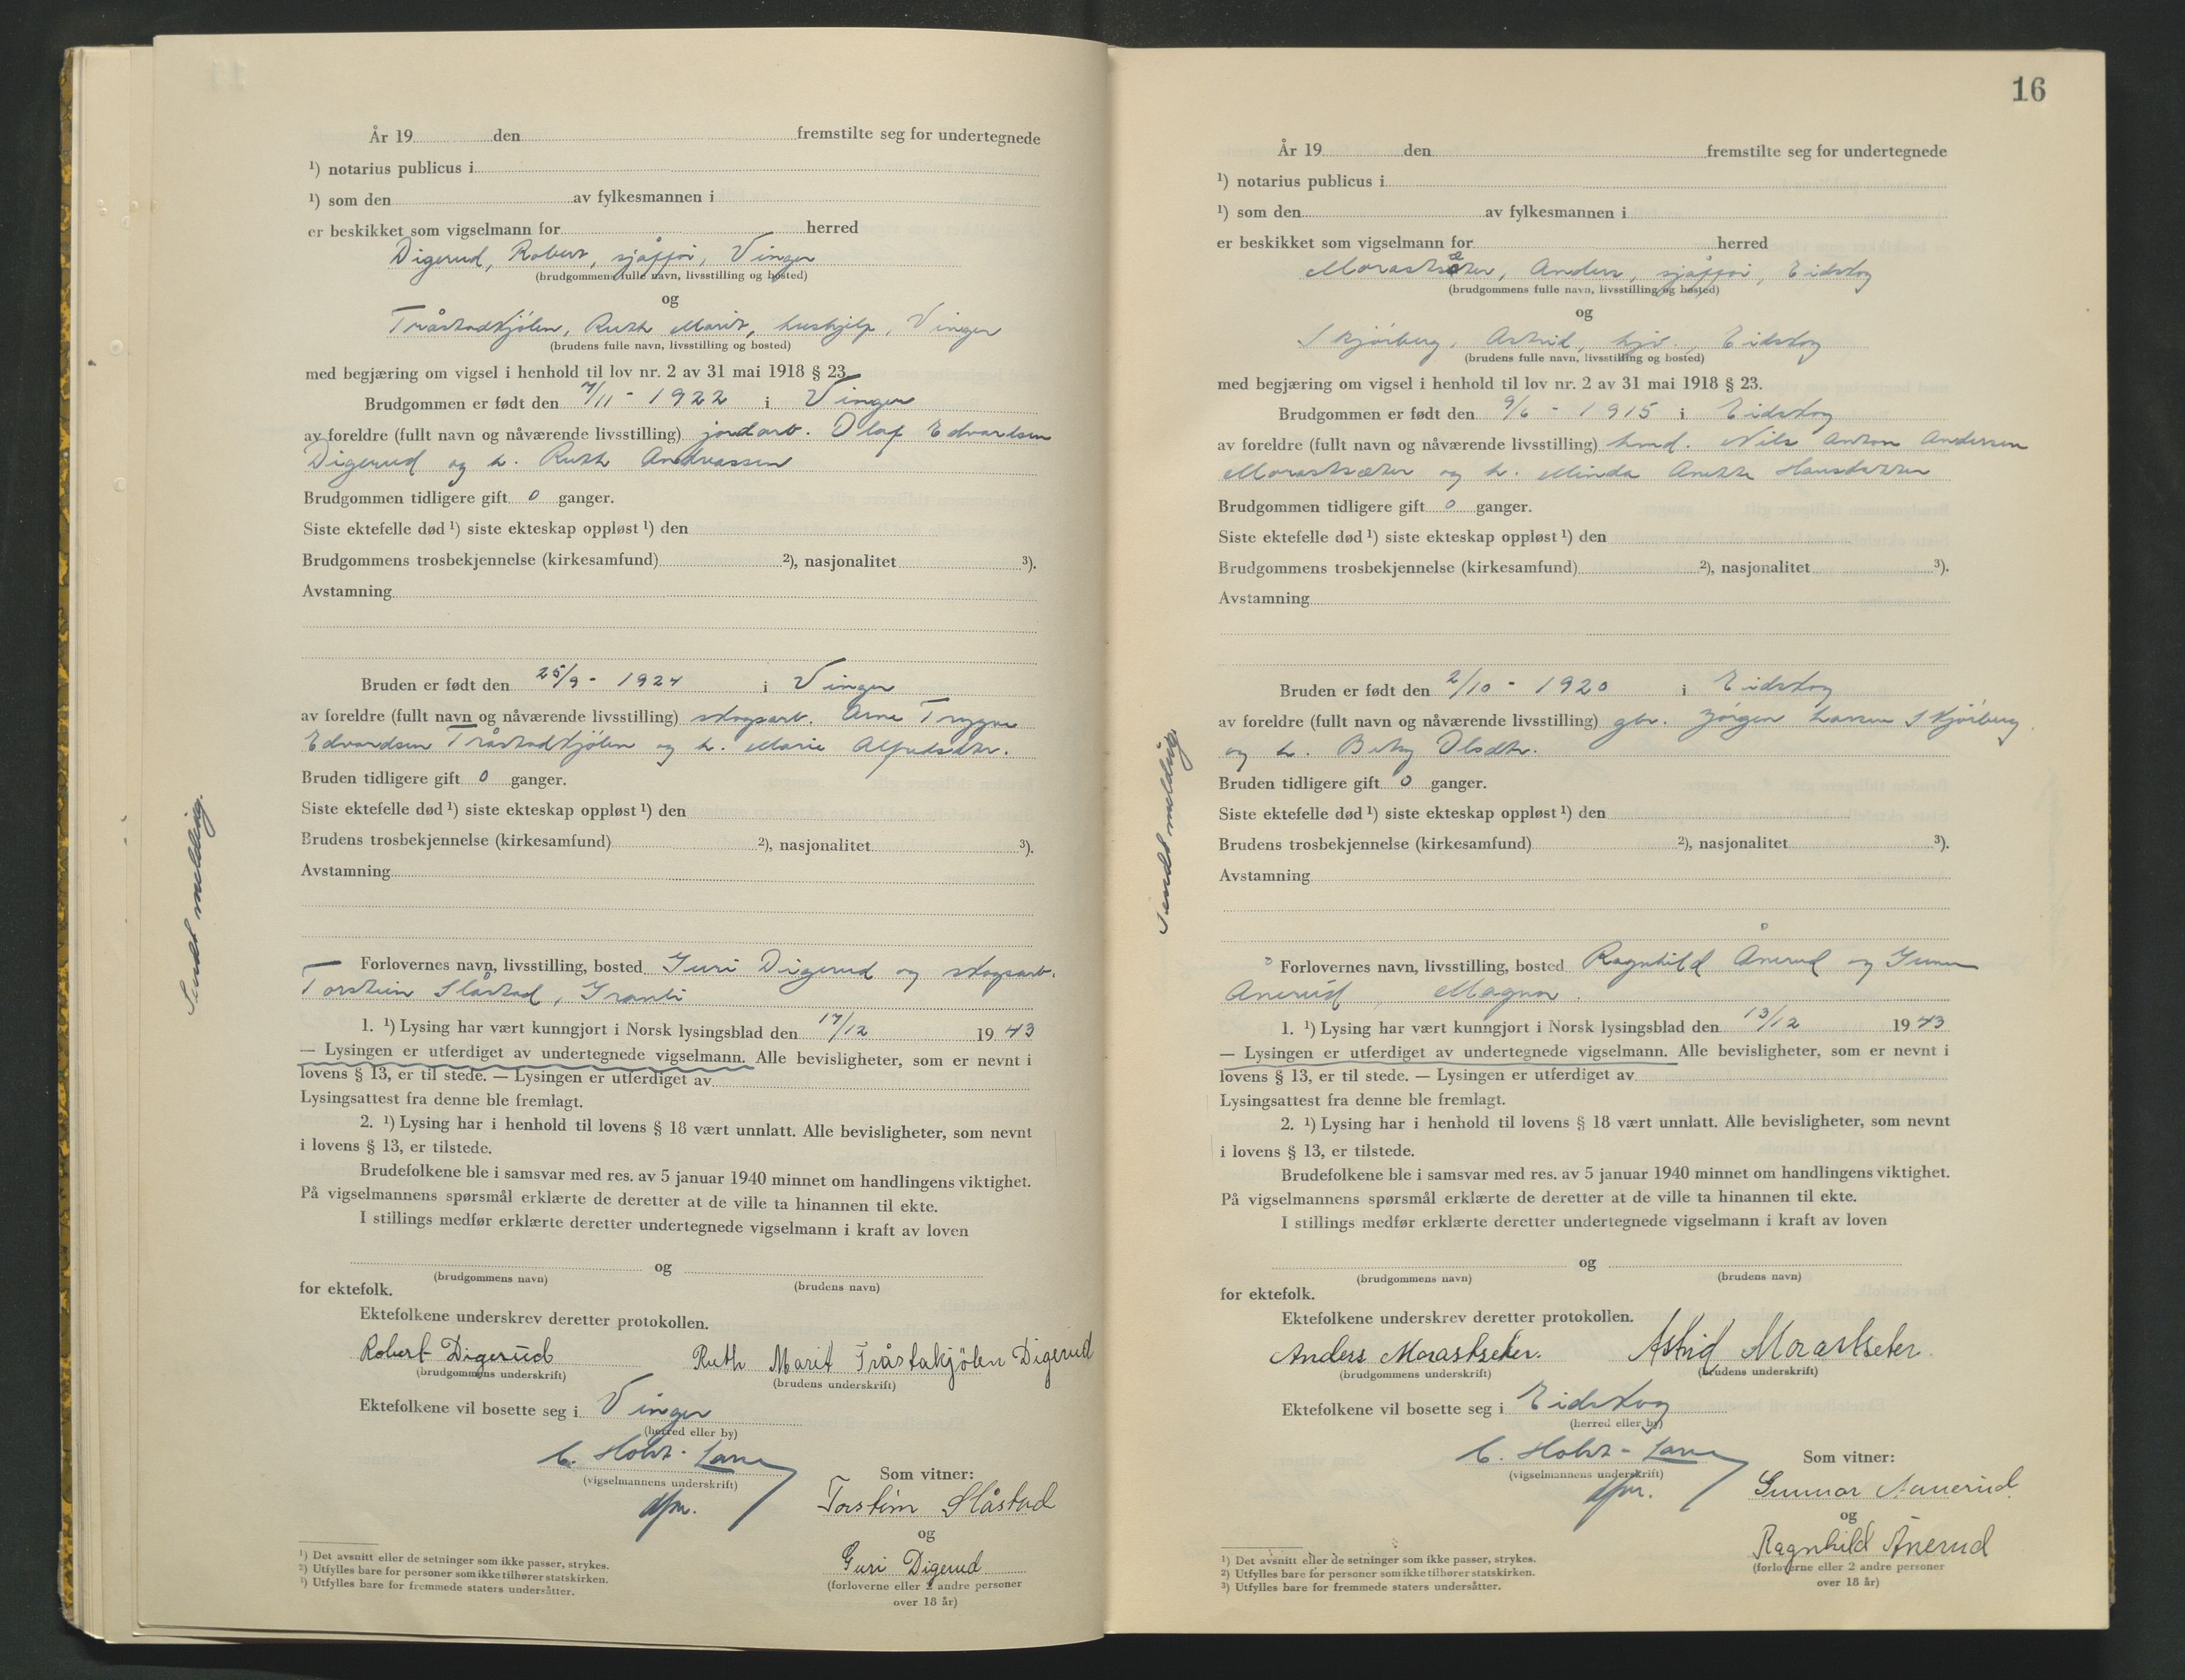 År 19 den fremstilte seg for undertegnede
¹) notarius publicus i
¹) som den av fylkesmannen i
er beskikket som vigselmann for herred
Digerud, Robert, sjåffør, Vinger
(brudgommens fulle navn, livsstilling og bosted)
og
Tråstadkjølen, Ruth Marit, hushjelp, Vinger
(brudens fulle navn, livsstilling og bosted)
med begjæring om vigsel i henhold til lov nr. 2 av 31 mai 1918 § 23.
Brudgommen er født den 7/11 - 1922 i Vinger
av foreldre (fullt navn og nåværende livsstilling) jordarb. Olaf Edvardsen
Digerud og h. Ruth Andreassen
Brudgommen tidligere gift 0 ganger.
Siste ektefelle død ¹) siste ekteskap oppløst ¹) den
Brudgommens trosbekjennelse (kirkesamfund) ²), nasjonalitet ³).
Avstamning
Bruden er født den 25/9 - 1924 i Vinger
av foreldre (fullt navn og nåværende livsstilling) skogsarb. Arne Trygve
Edvardsen Tråstadkjølen og h. Marie Alfredsdtr.
Bruden tidligere gift 0 ganger.
Siste ektefelle død ¹) siste ekteskap oppløst ¹) den
Brudens trosbekjennelse (kirkesamfund) ²), nasjonalitet ³).
Avstamning
Forlovernes navn, livsstilling, bosted Guri Digerud og skogsarb.
Torstein Slåstad, Granli
1. ¹) Lysing har vært kunngjort i Norsk lysingsblad den 17/12 1943
— Lysingen er utferdiget av undertegnede vigselmann. Alle bevisligheter, som er nevnt i
lovens § 13, er til stede. — Lysingen er utferdiget av
Lysingsattest fra denne ble fremlagt.
2. ¹) Lysing har i henhold til lovens § 18 vært unnlatt. Alle bevisligheter, som nevnt
i lovens § 13, er tilstede.
Brudefolkene ble i samsvar med res. av 5 januar 1940 minnet om handlingens viktighet.
På vigselmannens spørsmål erklærte de deretter at de ville ta hinannen til ekte.
I stillings medfør erklærte deretter undertegnede vigselmann i kraft av loven
og
(brudgommens navn) (brudens navn)
for ektefolk.
Ektefolkene underskrev deretter protokollen.
Robert Digerud Ruth Marit Tråstakjølen Digerud
(brudgommens underskrift) (brudens underskrift)
Ektefolkene vil bosette seg i Vinger
(herred eller by)
C. Holst-Lane
(vigselmannens underskrift)
dfm.
Som vitner:
Torstein Slåstad
og
Guri Digerud
(forloverne eller 2 andre personer
over 18 år)
¹) Det avsnitt eller de setninger som ikke passer, strykes.
²) Utfylles bare for personer som ikke tilhører statskirken.
³) Utfylles bare for fremmede staters undersåtter.
Sendt melding.
16
År 19 den fremstilte seg for undertegnede
¹) notarius publicus i
¹) som den av fylkesmannen i
er beskikket som vigselmann for herred
Morastsæter, Anders, sjåffør, Eidskog
(brudgommens fulle navn, livsstilling og bosted)
og
Skjørberg, Astrid, hjv., Eidskog
(brudens fulle navn, livsstilling og bosted)
med begjæring om vigsel i henhold til lov nr. 2 av 31 mai 1918 § 23.
Brudgommen er født den 9/6 - 1915 i Eidskog
av foreldre (fullt navn og nåværende livsstilling) hmd. Nils Anton Andersen
Morastsæter og h. Minda Anette Hansdatter
Brudgommen tidligere gift 0 ganger.
Siste ektefelle død ¹) siste ekteskap oppløst ¹) den
Brudgommens trosbekjennelse (kirkesamfund) ²), nasjonalitet ³).
Avstamning
Bruden er født den 2/10 - 1920 i Eidskog
av foreldre (fullt navn og nåværende livsstilling) gbr. Jørgen Larsen Skjørberg
og h. Betsy Olsdtr.
Bruden tidligere gift 0 ganger.
Siste ektefelle død ¹) siste ekteskap oppløst ¹) den
Brudens trosbekjennelse (kirkesamfund) ²), nasjonalitet ³).
Avstamning
Forlovernes navn, livsstilling, bosted Ragnhild Ånerud og Gunnar
Ånerud, Magnor.
1. ¹) Lysing har vært kunngjort i Norsk lysingsblad den 13/12 1943
— Lysingen er utferdiget av undertegnede vigselmann. Alle bevisligheter, som er nevnt i
lovens § 13, er til stede. — Lysingen er utferdiget av
Lysingsattest fra denne ble fremlagt.
2. ¹) Lysing har i henhold til lovens § 18 vært unnlatt. Alle bevisligheter, som nevnt
i lovens § 13, er tilstede.
Brudefolkene ble i samsvar med res. av 5 januar 1940 minnet om handlingens viktighet.
På vigselmannens spørsmål erklærte de deretter at de ville ta hinannen til ekte.
I stillings medfør erklærte deretter undertegnede vigselmann i kraft av loven
og
(brudgommens navn) (brudens navn)
for ektefolk.
Ektefolkene underskrev deretter protokollen.
Anders Morastseter. Astrid Morastseter.
(brudgommens underskrift) (brudens underskrift)
Ektefolkene vil bosette seg i Eidskog
(herred eller by)
C. Holst-Lane
(vigselmannens underskrift)
dfm.
Som vitner:
Gunnar Aanerud
og
Ragnhild Ånerud
(forloverne eller 2 andre personer
over 18 år)
¹) Det avsnitt eller de setninger som ikke passer, strykes.
²) Utfylles bare for personer som ikke tilhører statskirken.
³) Utfylles bare for fremmede staters undersåtter.
Sendt melding.